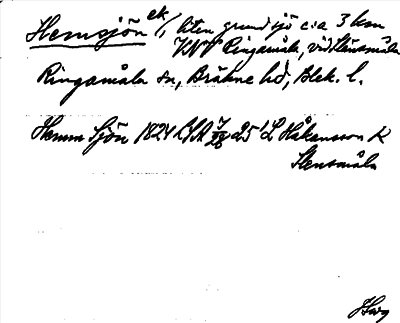 Hemsjön ek, liten grund sjö c:a 3 km
VNV Ringamåla, vid Stensmåla
Ringamåla sn, Bräkne hd, Blek. l.
Hemm Sjön 1824 LSA 25 L Håkansson K
Stensmåla